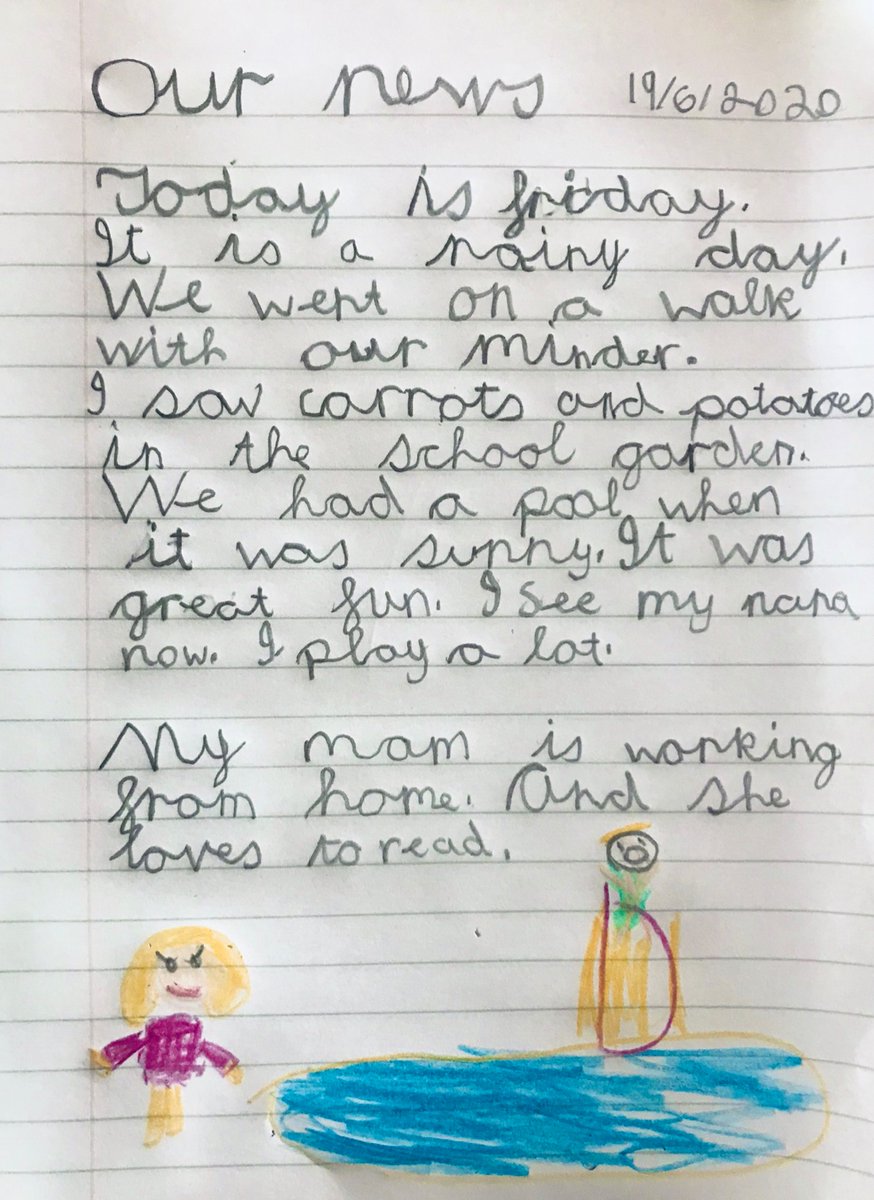 Our news 19/6/2020
Today is friday.
It is a rainy day.
We went on a walk
with our minder.
I saw carrots and potatoes
in the school garden.
We had a pool when
it was sunny. It was
great fun. I see my nana
now. I play a lot.
My mam is working
from home. And she
loves to read.